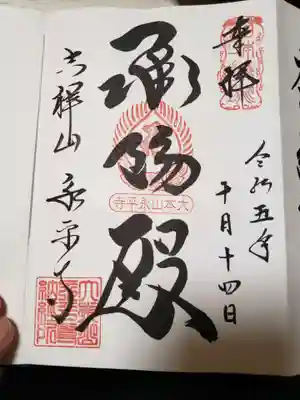 奉拝
令和五年
十月十四日
承陽殿
大本山永平寺
吉祥山 永平寺